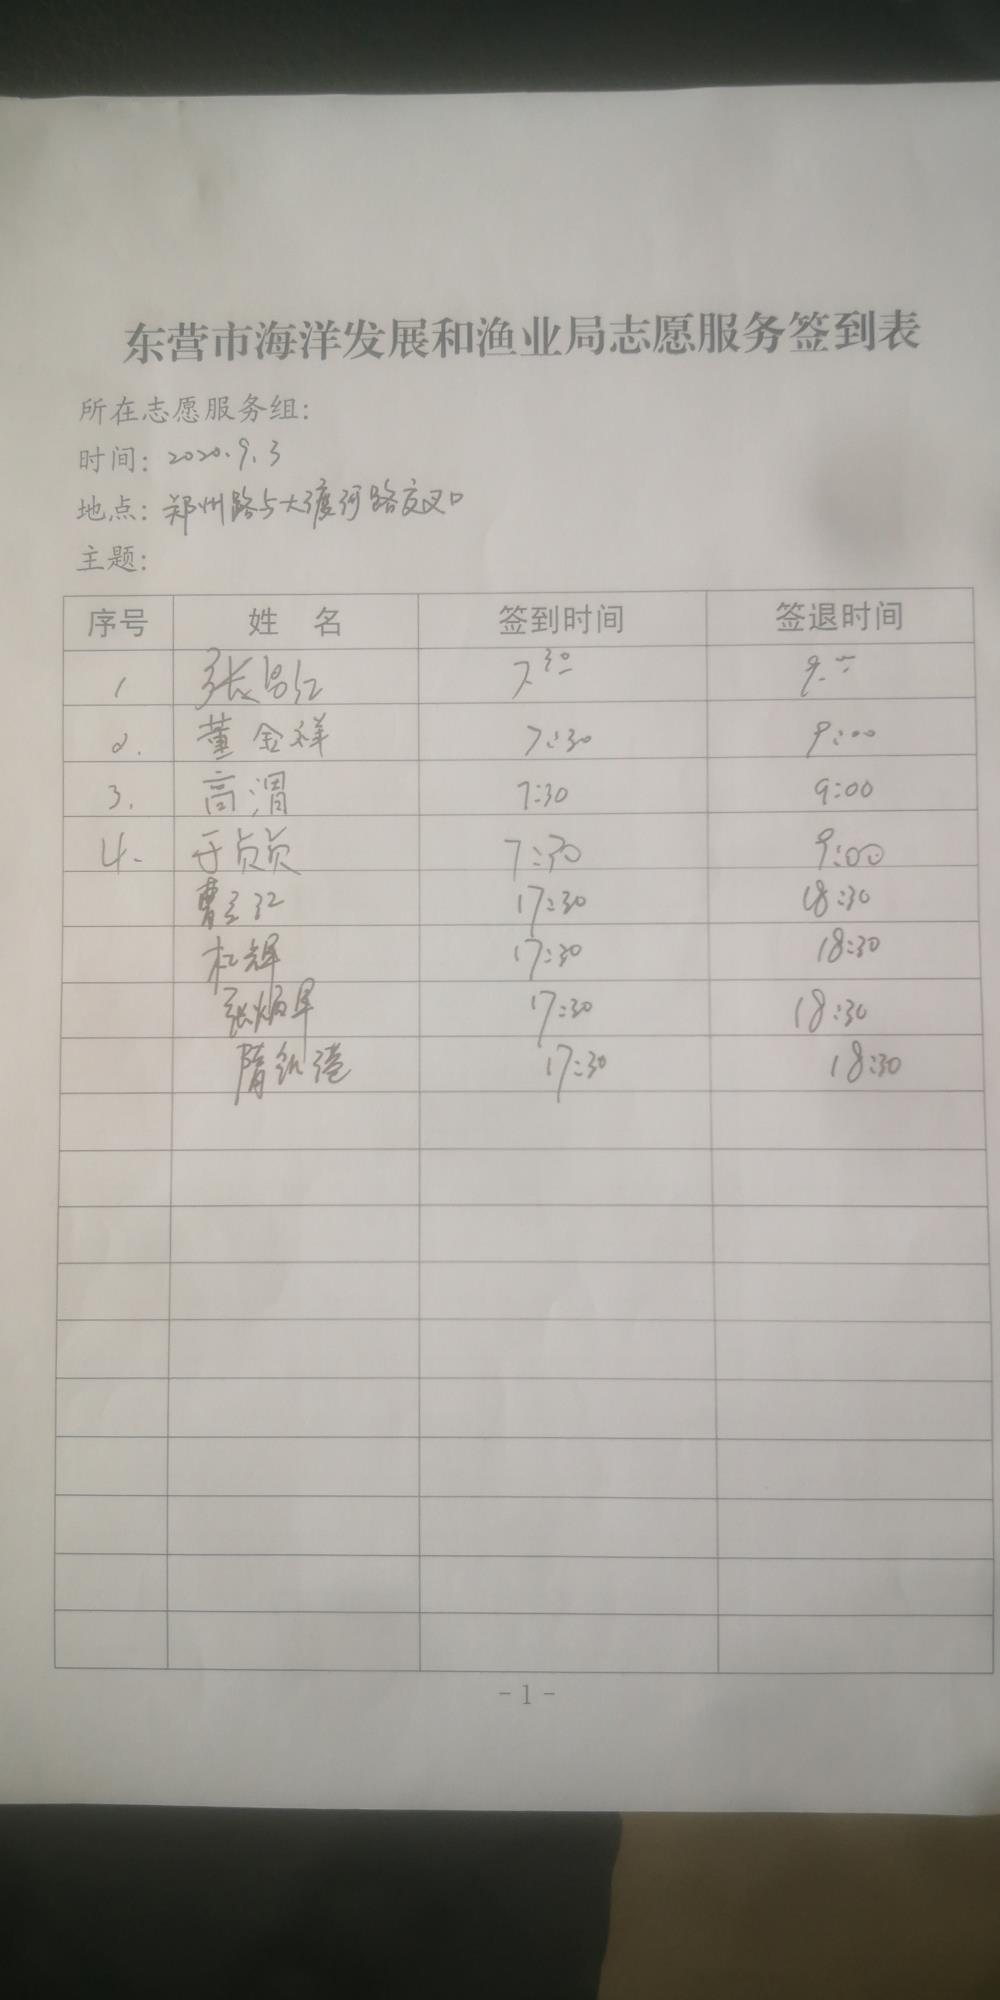 东营市海洋发展和渔业局志愿服务签到表
所在志愿服务组:
时间: 2020.9.3
地点: 郑州路与大渡河路交叉口
主题:
序号 姓 名 签到时间 签退时间
1 张昌红 7 30 9
2. 董金祥 7:30 9:00
3. 高渭 7:30 9:00
4. 于贞贞 7:30 9:00
曹 17:30 18:30
杜辉 17:30 18:30
张 17:30 18:30
隋 17:30 18:30
- 1 -